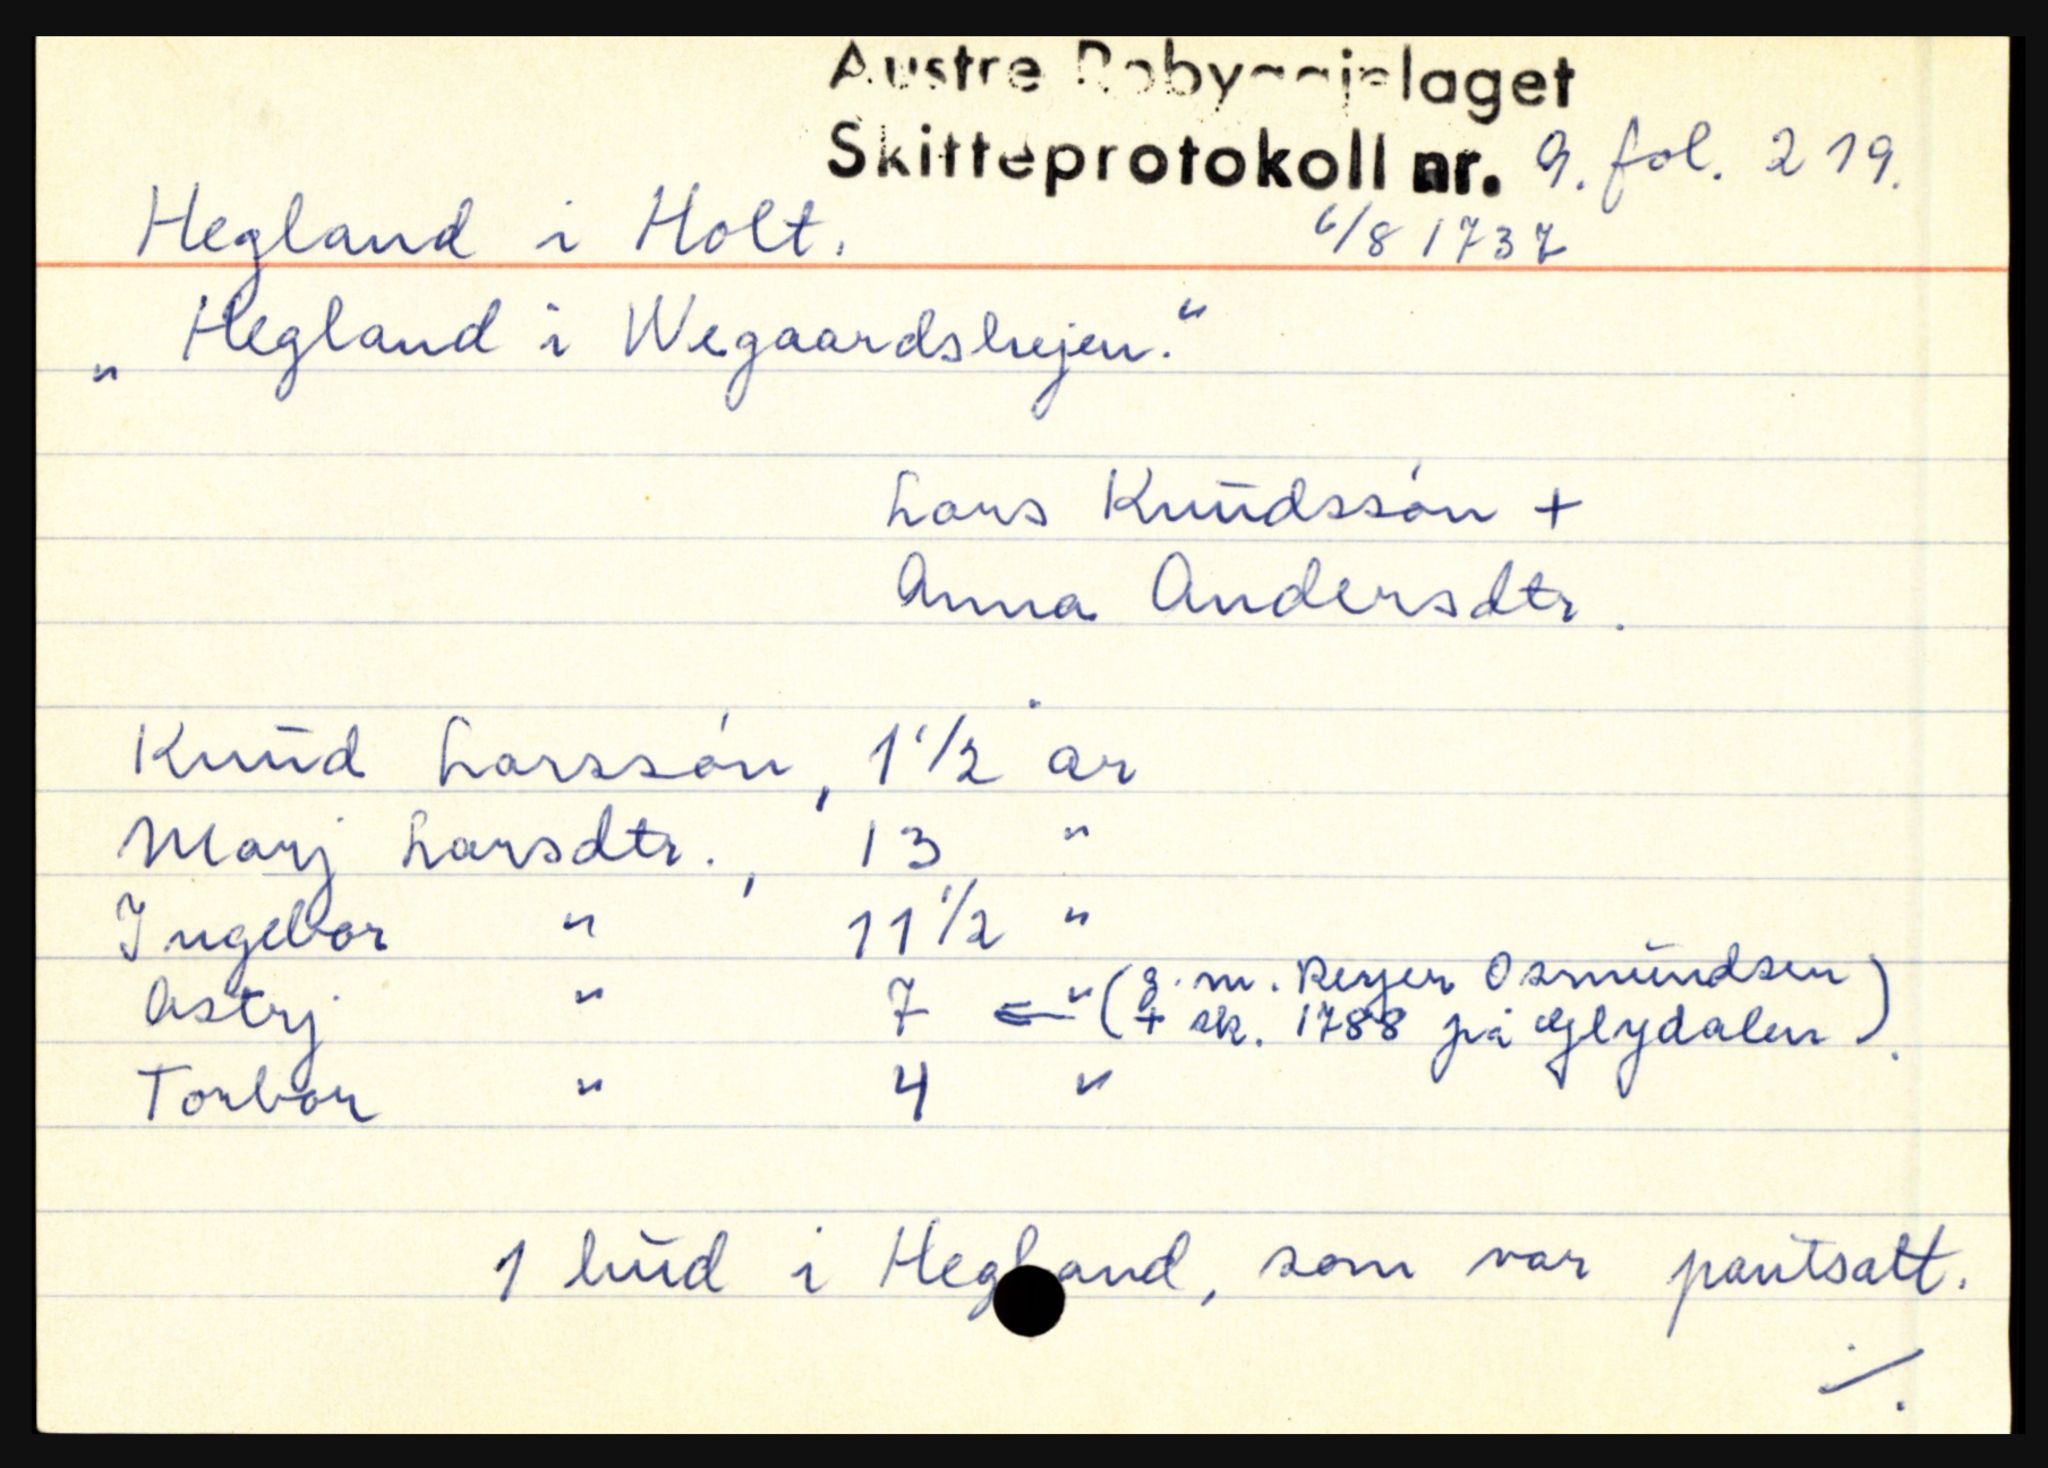 Austre Robyggjelaget
Skifteprotokoll nr. 9. fol. 219.
Hegland i Holt. 6/8 1737
„ Hegland i Wegaardsheien.“
Lars Knudssón +
Anna Andersdtr.
Knud Larssón, 1 1/2 år
Marj Larsdtr., 13 "
Ingebor " 11 1/2 "
Astrj " 7 " (g. m. Reyer Osmundsen
+ sk. 1788 på Glydalen).
Torbor " 4 "
1 hud i Hegland, som var pantsatt.
⁒